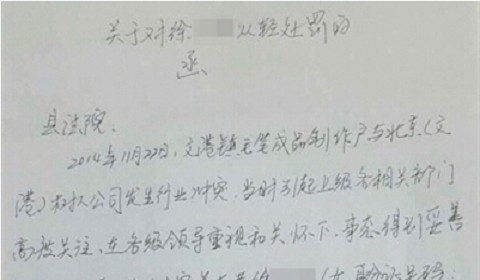 关于对徐 从轻处罚的
函
县法院：
2014年11月22日，文港镇毛笔成品制作户与北京（文
港）权以公司发生行业冲突，当时引起上级各相关部门
高度关注，在各级领导重视和关怀下，事态得到妥善